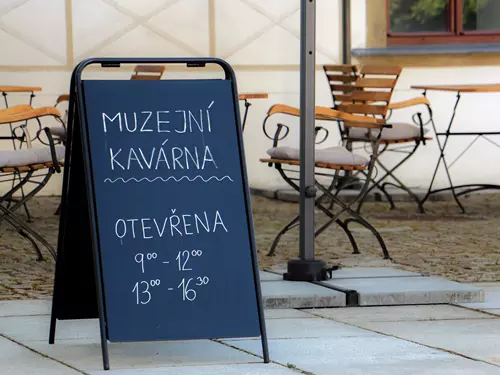 MUZEJNÍ
KAVÁRNA
OTEVŘENA
9⁰⁰ - 12⁰⁰
13⁰⁰ - 16³⁰